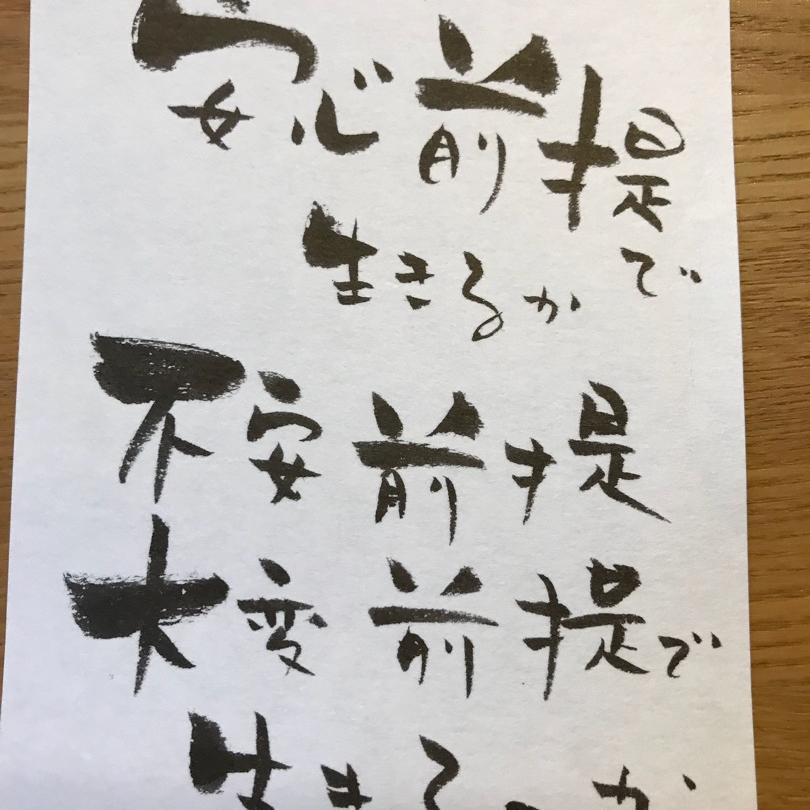 安心前提で
生きるか
不安前提
大変前提で
生きるか